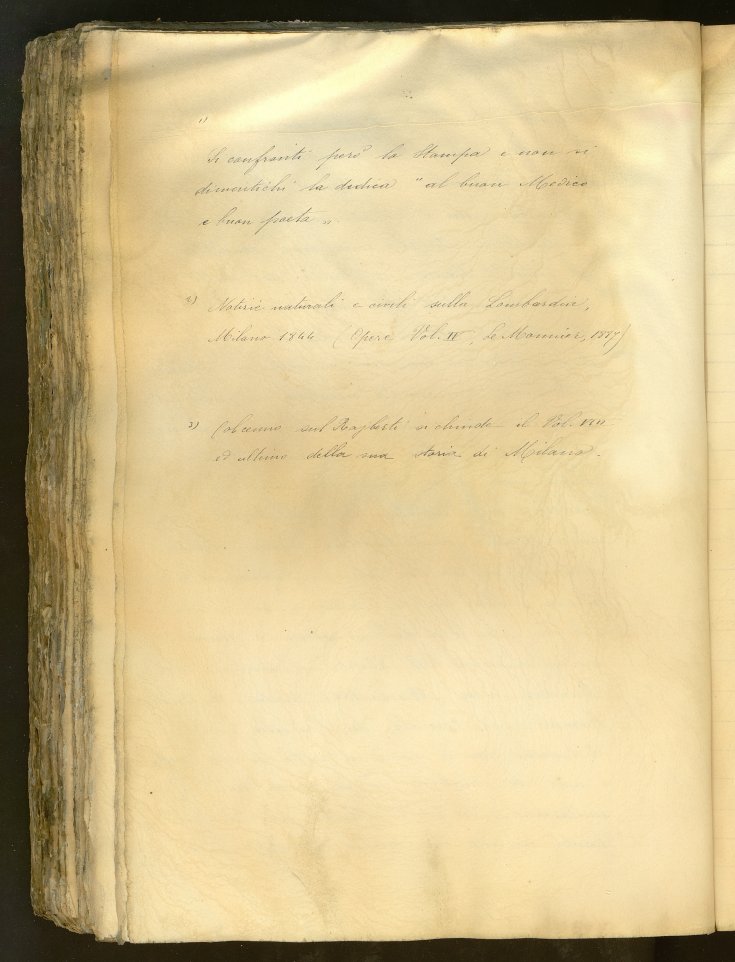 1)
Si confronti però la Stampa e non si
dimentichi la dedica "al buon Medico
e buon poeta".
2) Notizie naturali e civili sulla Lombardia,
Milano 1844 (Opere Vol. IV, Le Monnier, 1887)
3) Col cenno sul Rajberti si chiude il Vol.
ed ultimo della sua storia di Milano.